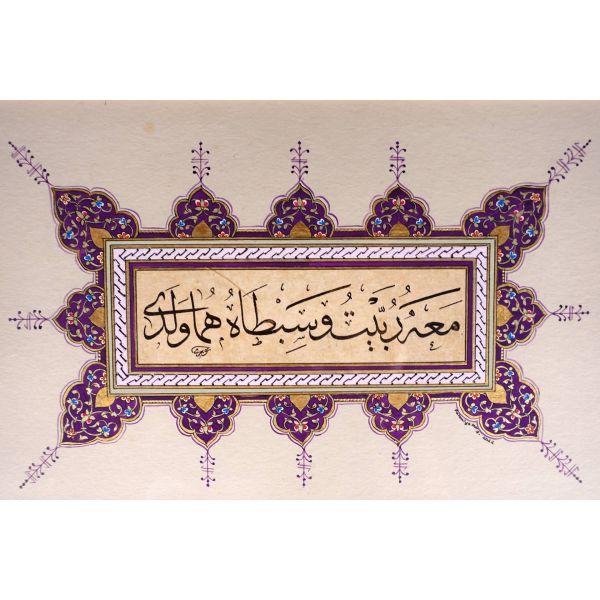 مَعَهُ رُبِّيتُ وَسِبْطَاهُ هُمَا وَلَدَىَّ